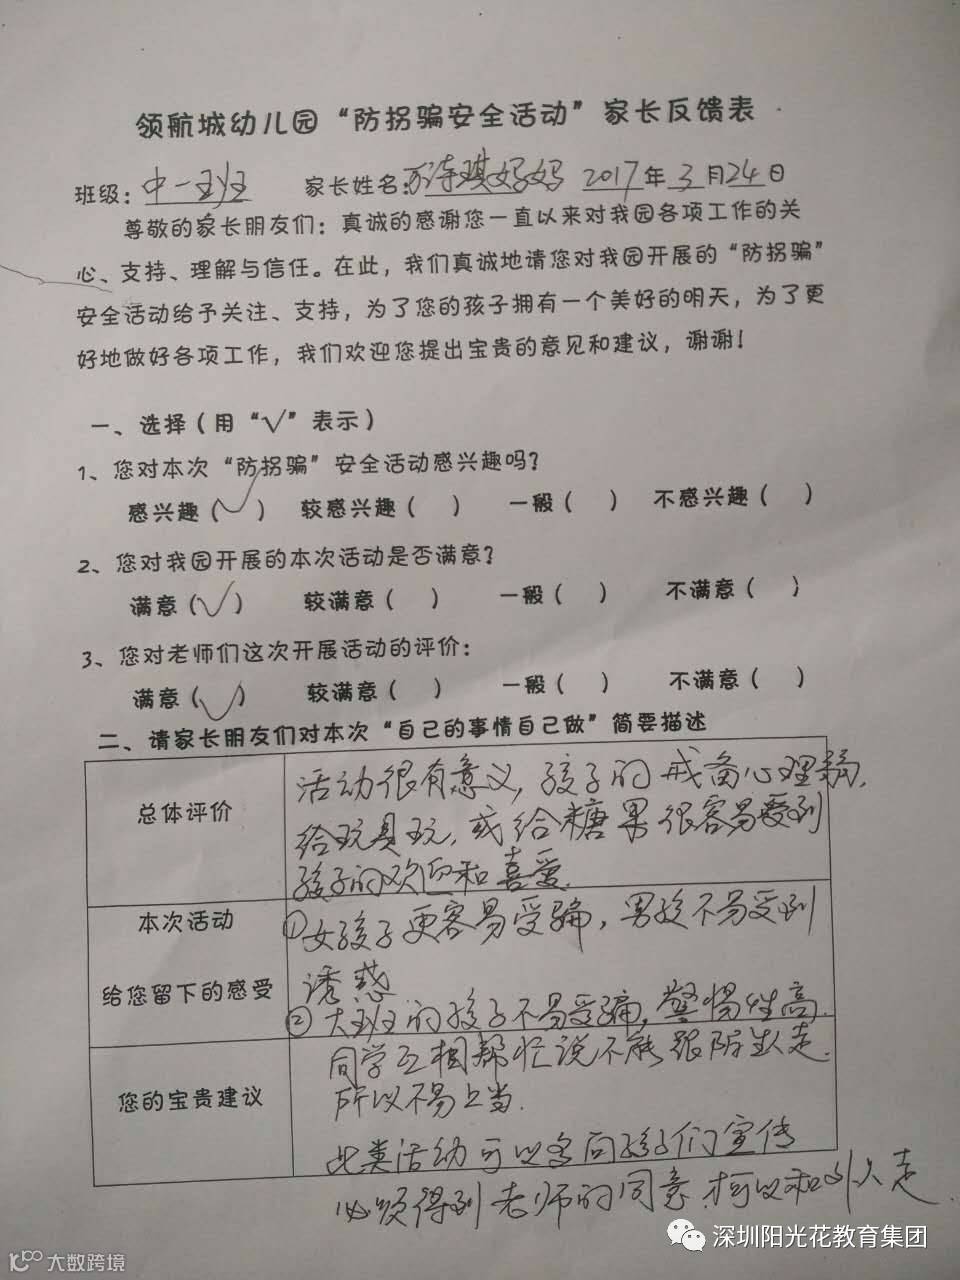 领航城幼儿园“防拐骗安全活动”家长反馈表
班级：中一班 家长姓名：诗琪妈妈 2017年3月24日
尊敬的家长朋友们：真诚的感谢您一直以来对我园各项工作的关
心、支持、理解与信任。在此，我们真诚地请您对我园开展的“防拐骗”
安全活动给予关注、支持，为了您的孩子拥有一个美好的明天，为了更
好地做好各项工作，我们欢迎您提出宝贵的意见和建议，谢谢！
一、选择（用“√”表示）
1、您对本次“防拐骗”安全活动感兴趣吗？
感兴趣（√） 较感兴趣（ ） 一般（ ） 不感兴趣（ ）
2、您对我园开展的本次活动是否满意？
满意（√） 较满意（ ） 一般（ ） 不满意（ ）
3、您对老师们这次开展活动的评价：
满意（√） 较满意（ ） 一般（ ） 不满意（ ）
二、请家长朋友们对本次“自己的事情自己做”简要描述
总体评价
活动很有意义，孩子的戒备心理弱，
给玩具玩，或给糖果很容易受到
孩子的欢迎和喜爱.
本次活动
给您留下的感受
①女孩子更容易受骗，男孩不易受到
诱惑
②大班的孩子不易受骗，警惕性高.
同学互相帮忙说不能跟陌生人走.
所以不易上当.
您的宝贵建议
此类活动可以多向孩子们宣传
必须得到老师的同意.才可以和外人走.
深圳阳光花教育集团
大数跨境